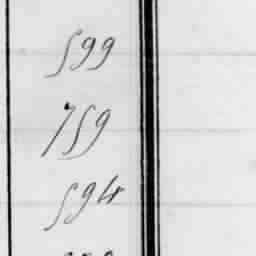 599
759
594